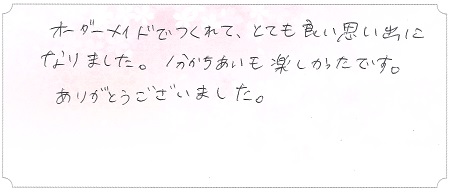 オーダーメイドでつくれて、とても良い思い出に
なりました。分かちあいも楽しかったです。
ありがとうございました。